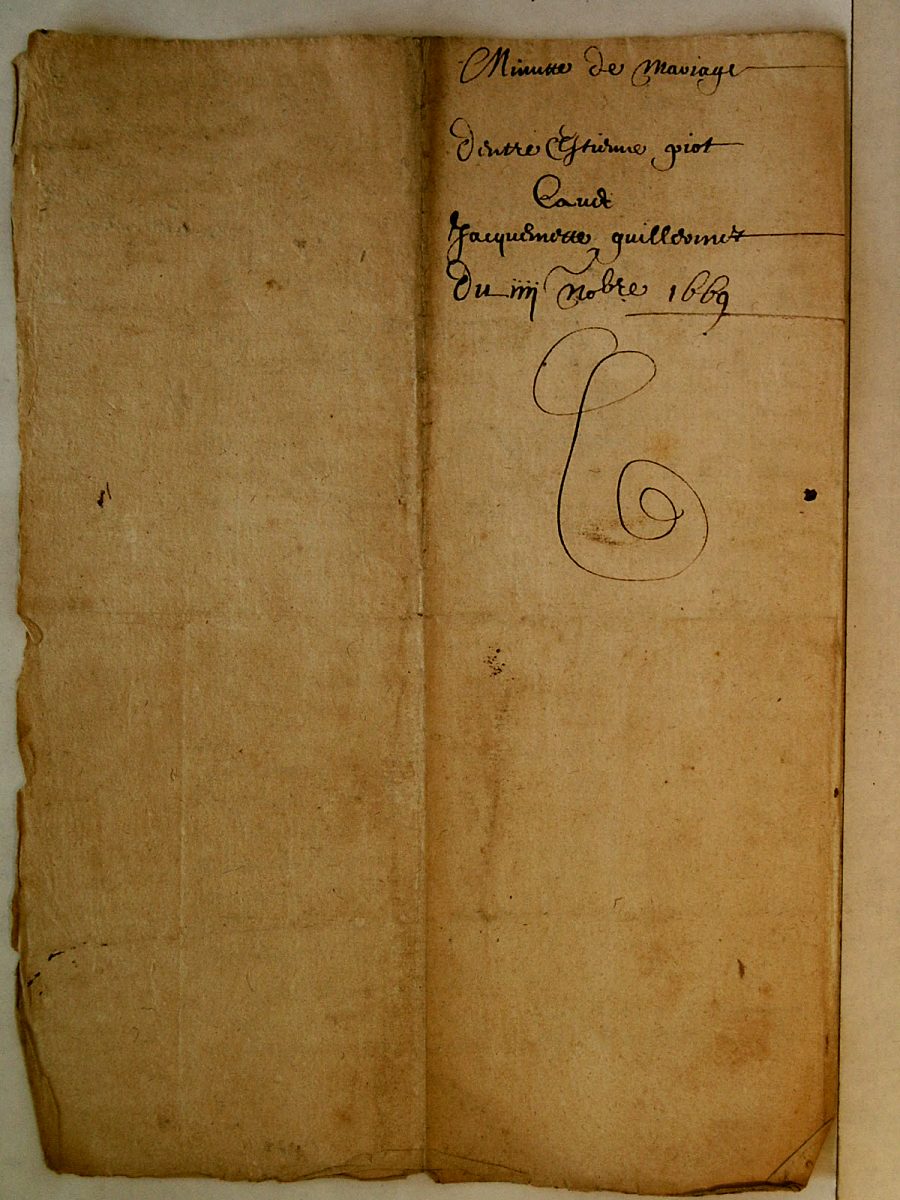 Minutte de Mariage
Dentre Estienne piot
Jacquemette guillemet
Du iiij Nobre 1669